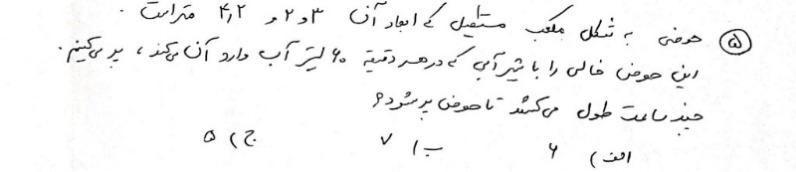 ۵) حوضی به شکل مکعب مستطیل که ابعاد آن ۳ و ۲ و ۴٫۲ متر است.
این حوض خالی را با شیر آبی که در هر دقیقه ۶۰ لیتر آب وارد آن می‌کند، پر می‌کنیم.
چند ساعت طول می‌کشد تا حوض پر شود؟
الف) ۶ ب) ۷ ج) ۵